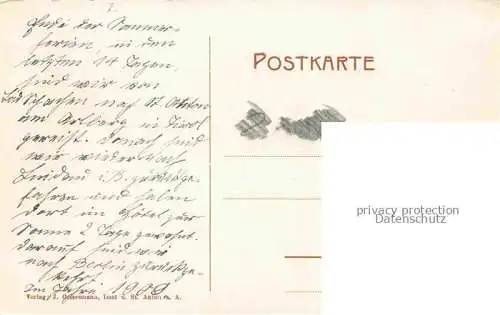 Ende der Sommer-
ferien, in den
letzten 14 Tagen,
sind wir von
Bad Schachen nach St. Anton
am Arlberg in Tirol
gereist. Danach sind
wir wieder nach
Lindau i. B. zurückge-
fahren und haben
dort im Hotel zur
Sonne 2 Tage gewohnt.
Darauf sind wir
nach Berlin zurückge-
kehrt.
Im Jahre 1909
Verlag J. Ochsenmann, Imst u. St. Anton a. A.
POSTKARTE
privacy protection
Datenschutz